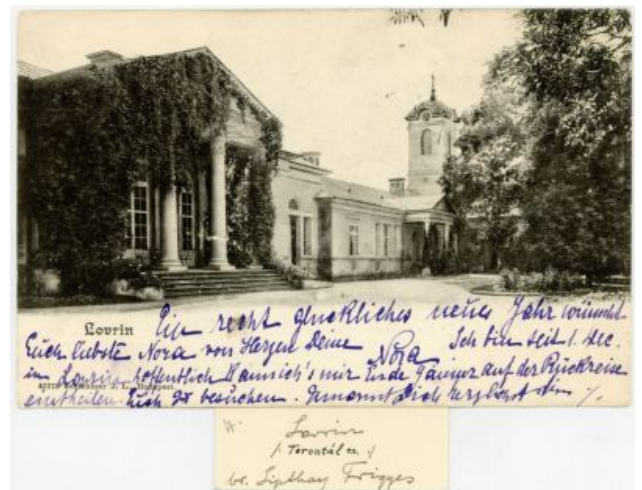 Lovrin
Ein recht glückliches neues Jahr wünscht
Euch liebste Nora von Herzen Deine Nora Ich bin seit 1. Dec.
in Lovrin hoffentlich kann ich's mir Ende Jänner auf der Rückreise
eintheilen Euch zu besuchen. herzlichst
Lovrin
/ Torontál m. /
br. Lipthay Frigyes